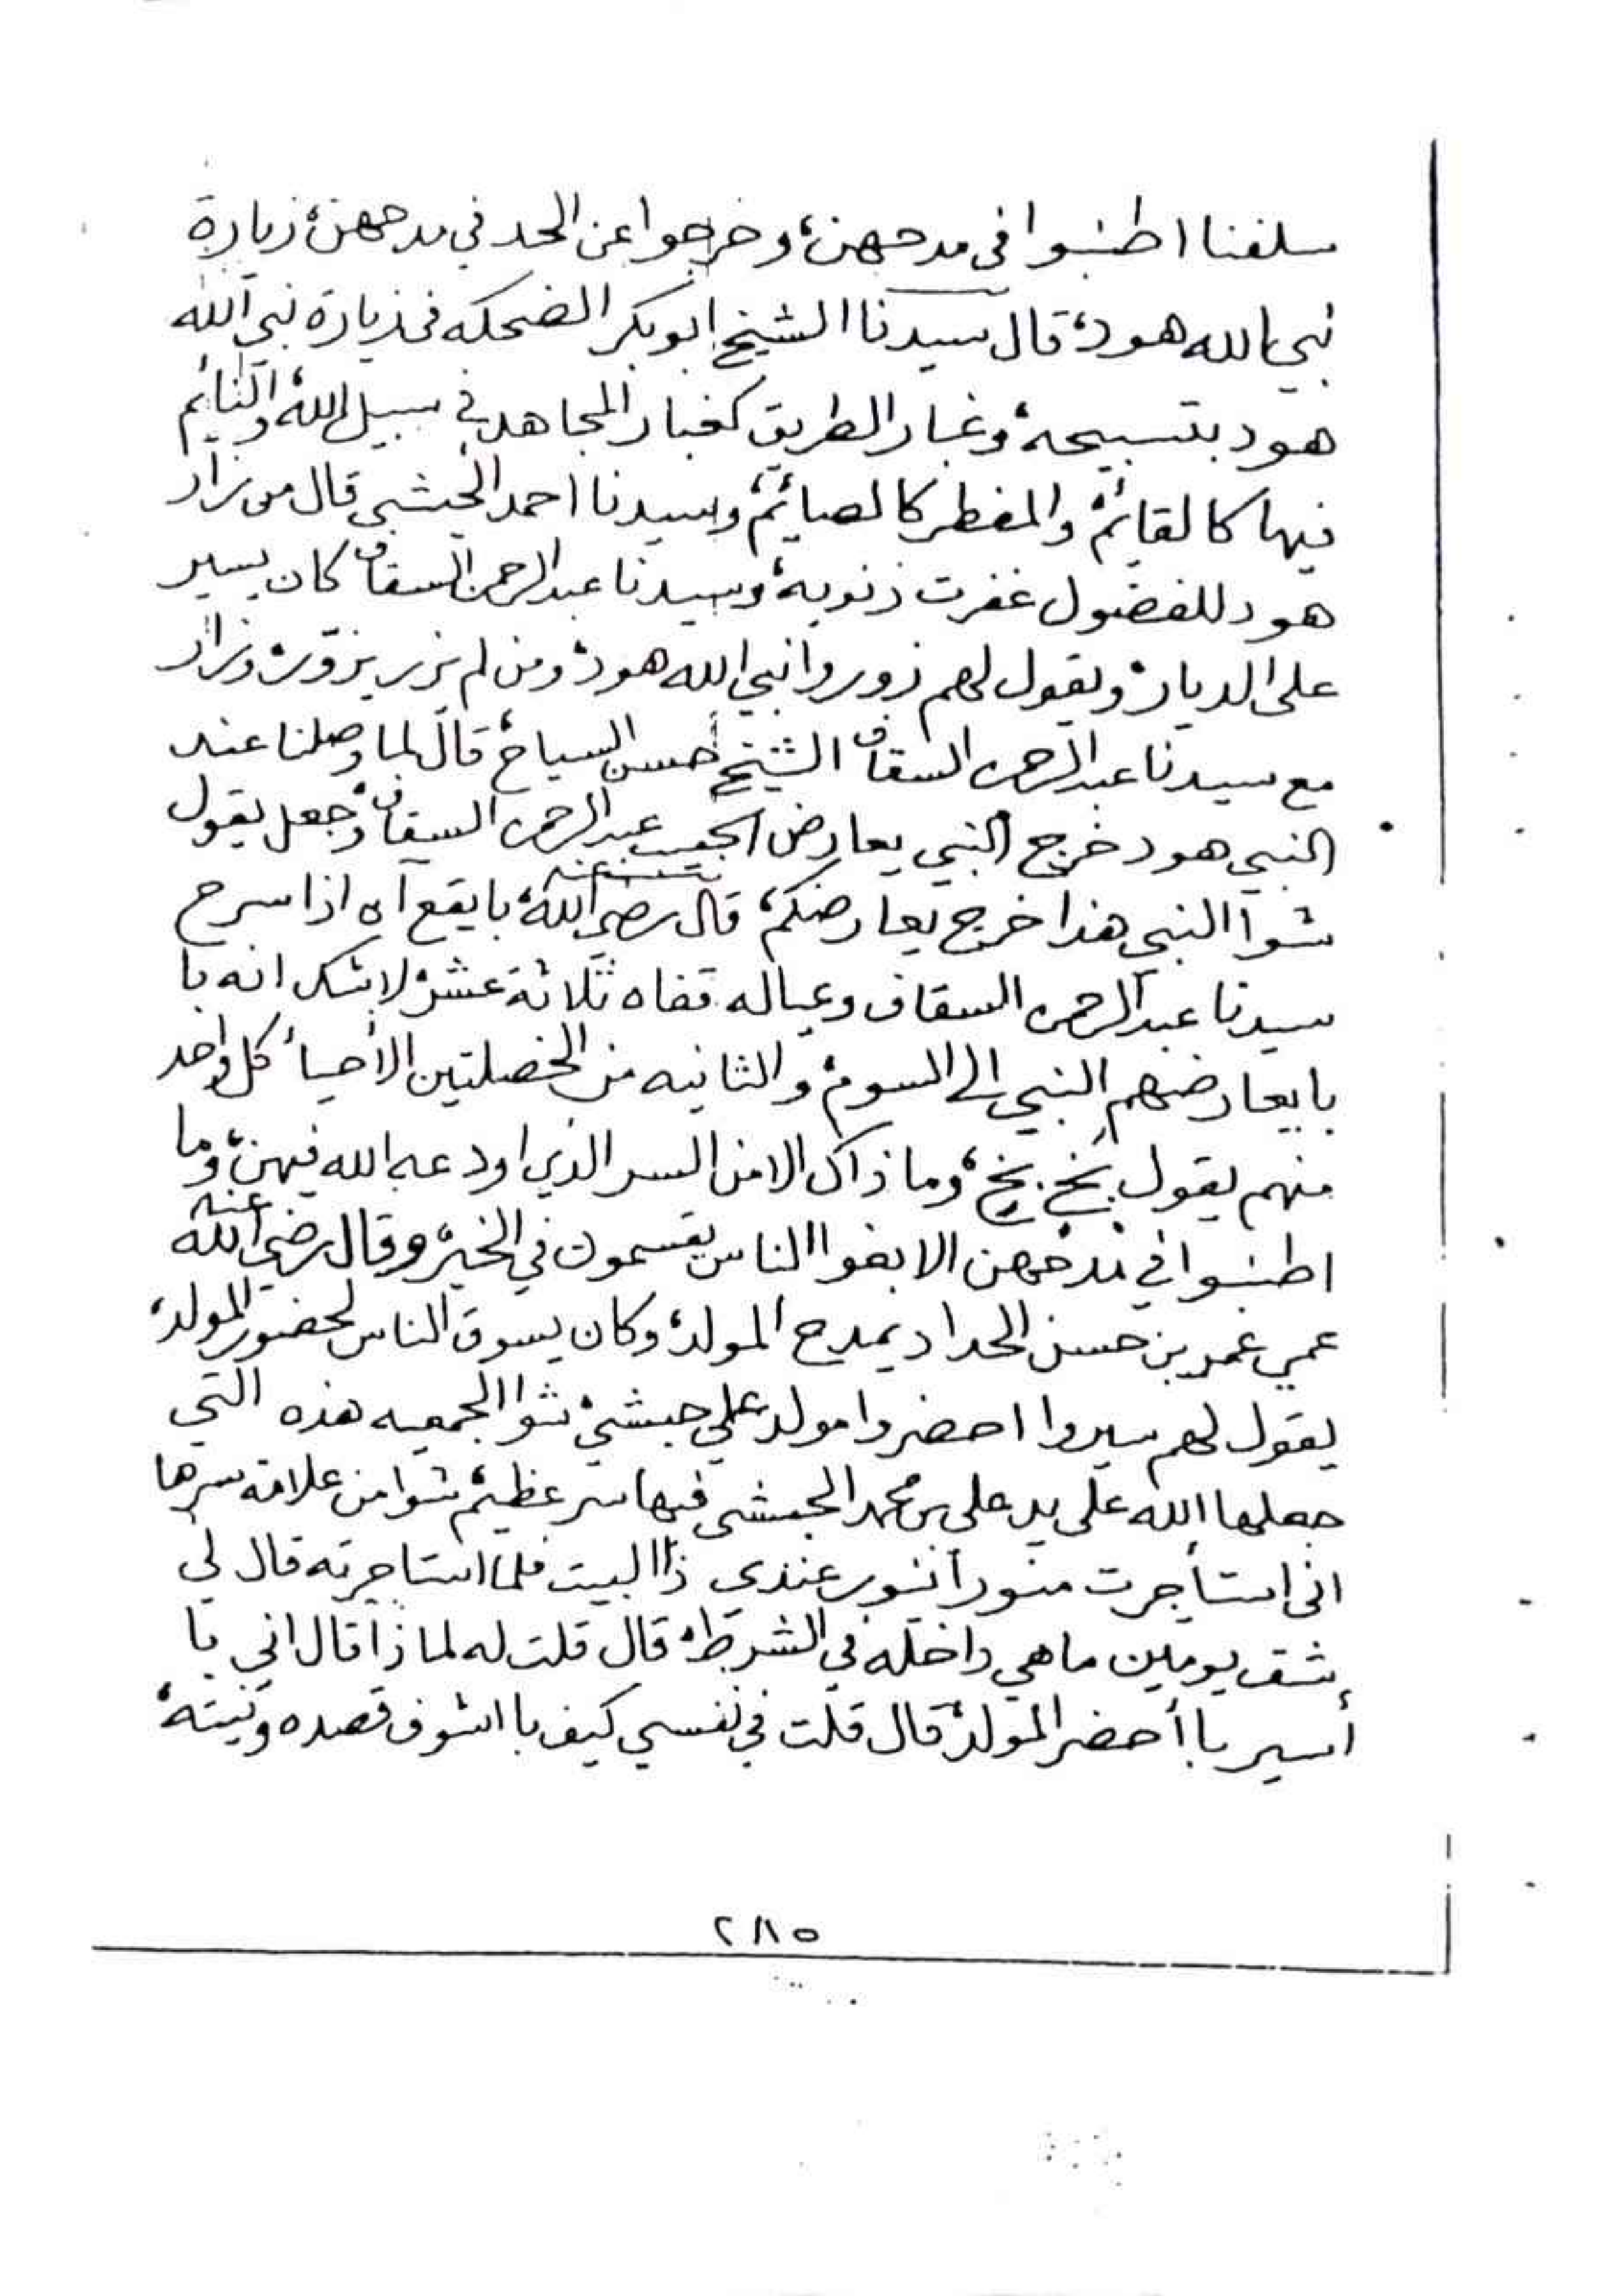 سلفنا اطنبوا في مدحهن، وخرجوا عن الحد في مدحهن، زيارة
نبي الله هود، قال سيدنا الشيخ ابوبكر الضحكه في زيارة نبي الله
هود بتسبيحه، وغبار الطريق كغبار المجاهد في سبيل الله، والنائم
فيها كالقائم، والمفطر كالصائم، وسيدنا احمد الحبشي قال من زار
هود للفضول غفرت ذنوبه، وسيدنا عبدالرحمن السقاف كان يسير
على الديار، ويقول لهم زوروا نبي الله هود، ومن لم يزر يزوّر، وزار
مع سيدنا عبدالرحمن السقاف الشيخ حسن السياح، قال لما وصلنا عند
النبي هود خرج النبي يعارض الحبيب عبدالرحمن السقاف، وجعل يقول
شوا النبي هذا خرج يعارضكم، قال رضي الله عنه، بايقع آه اذا سرح
سيدنا عبدالرحمن السقاف وعياله قفاه ثلاثة عشر، لاشك انه با
بايعارضهم النبي الى السوم، والثانيه من الخصلتين الأحيا كل واحد
منهم يقول بخ بخ، وما ذاك الا من السر الذي اودعه الله فيهن، وما
اطنبوا في مدحهن الا بغوا الناس يقسمون في الخير، وقال رضي الله عنه
عمي عمر بن حسن الحداد يمدح المولد، وكان يسوق الناس لحضور المولد،
يقول لهم سيروا احضروا مولد علي حبشي، شوا الجمعيه هذه التي
جعلها الله على يد علي بن محمد الحبشي فيها سر عظيم، شوا من علامة سرها
اني استأجرت منوراً ينور عندي ذا البيت فلما استاجرته قال لي
شف يومين ما هي داخله في الشرط، قال قلت له لماذا قال اني با
أسير با أحضر المولد، قال قلت في نفسي كيف با اشوف قصده ونيته،
٢٨٥